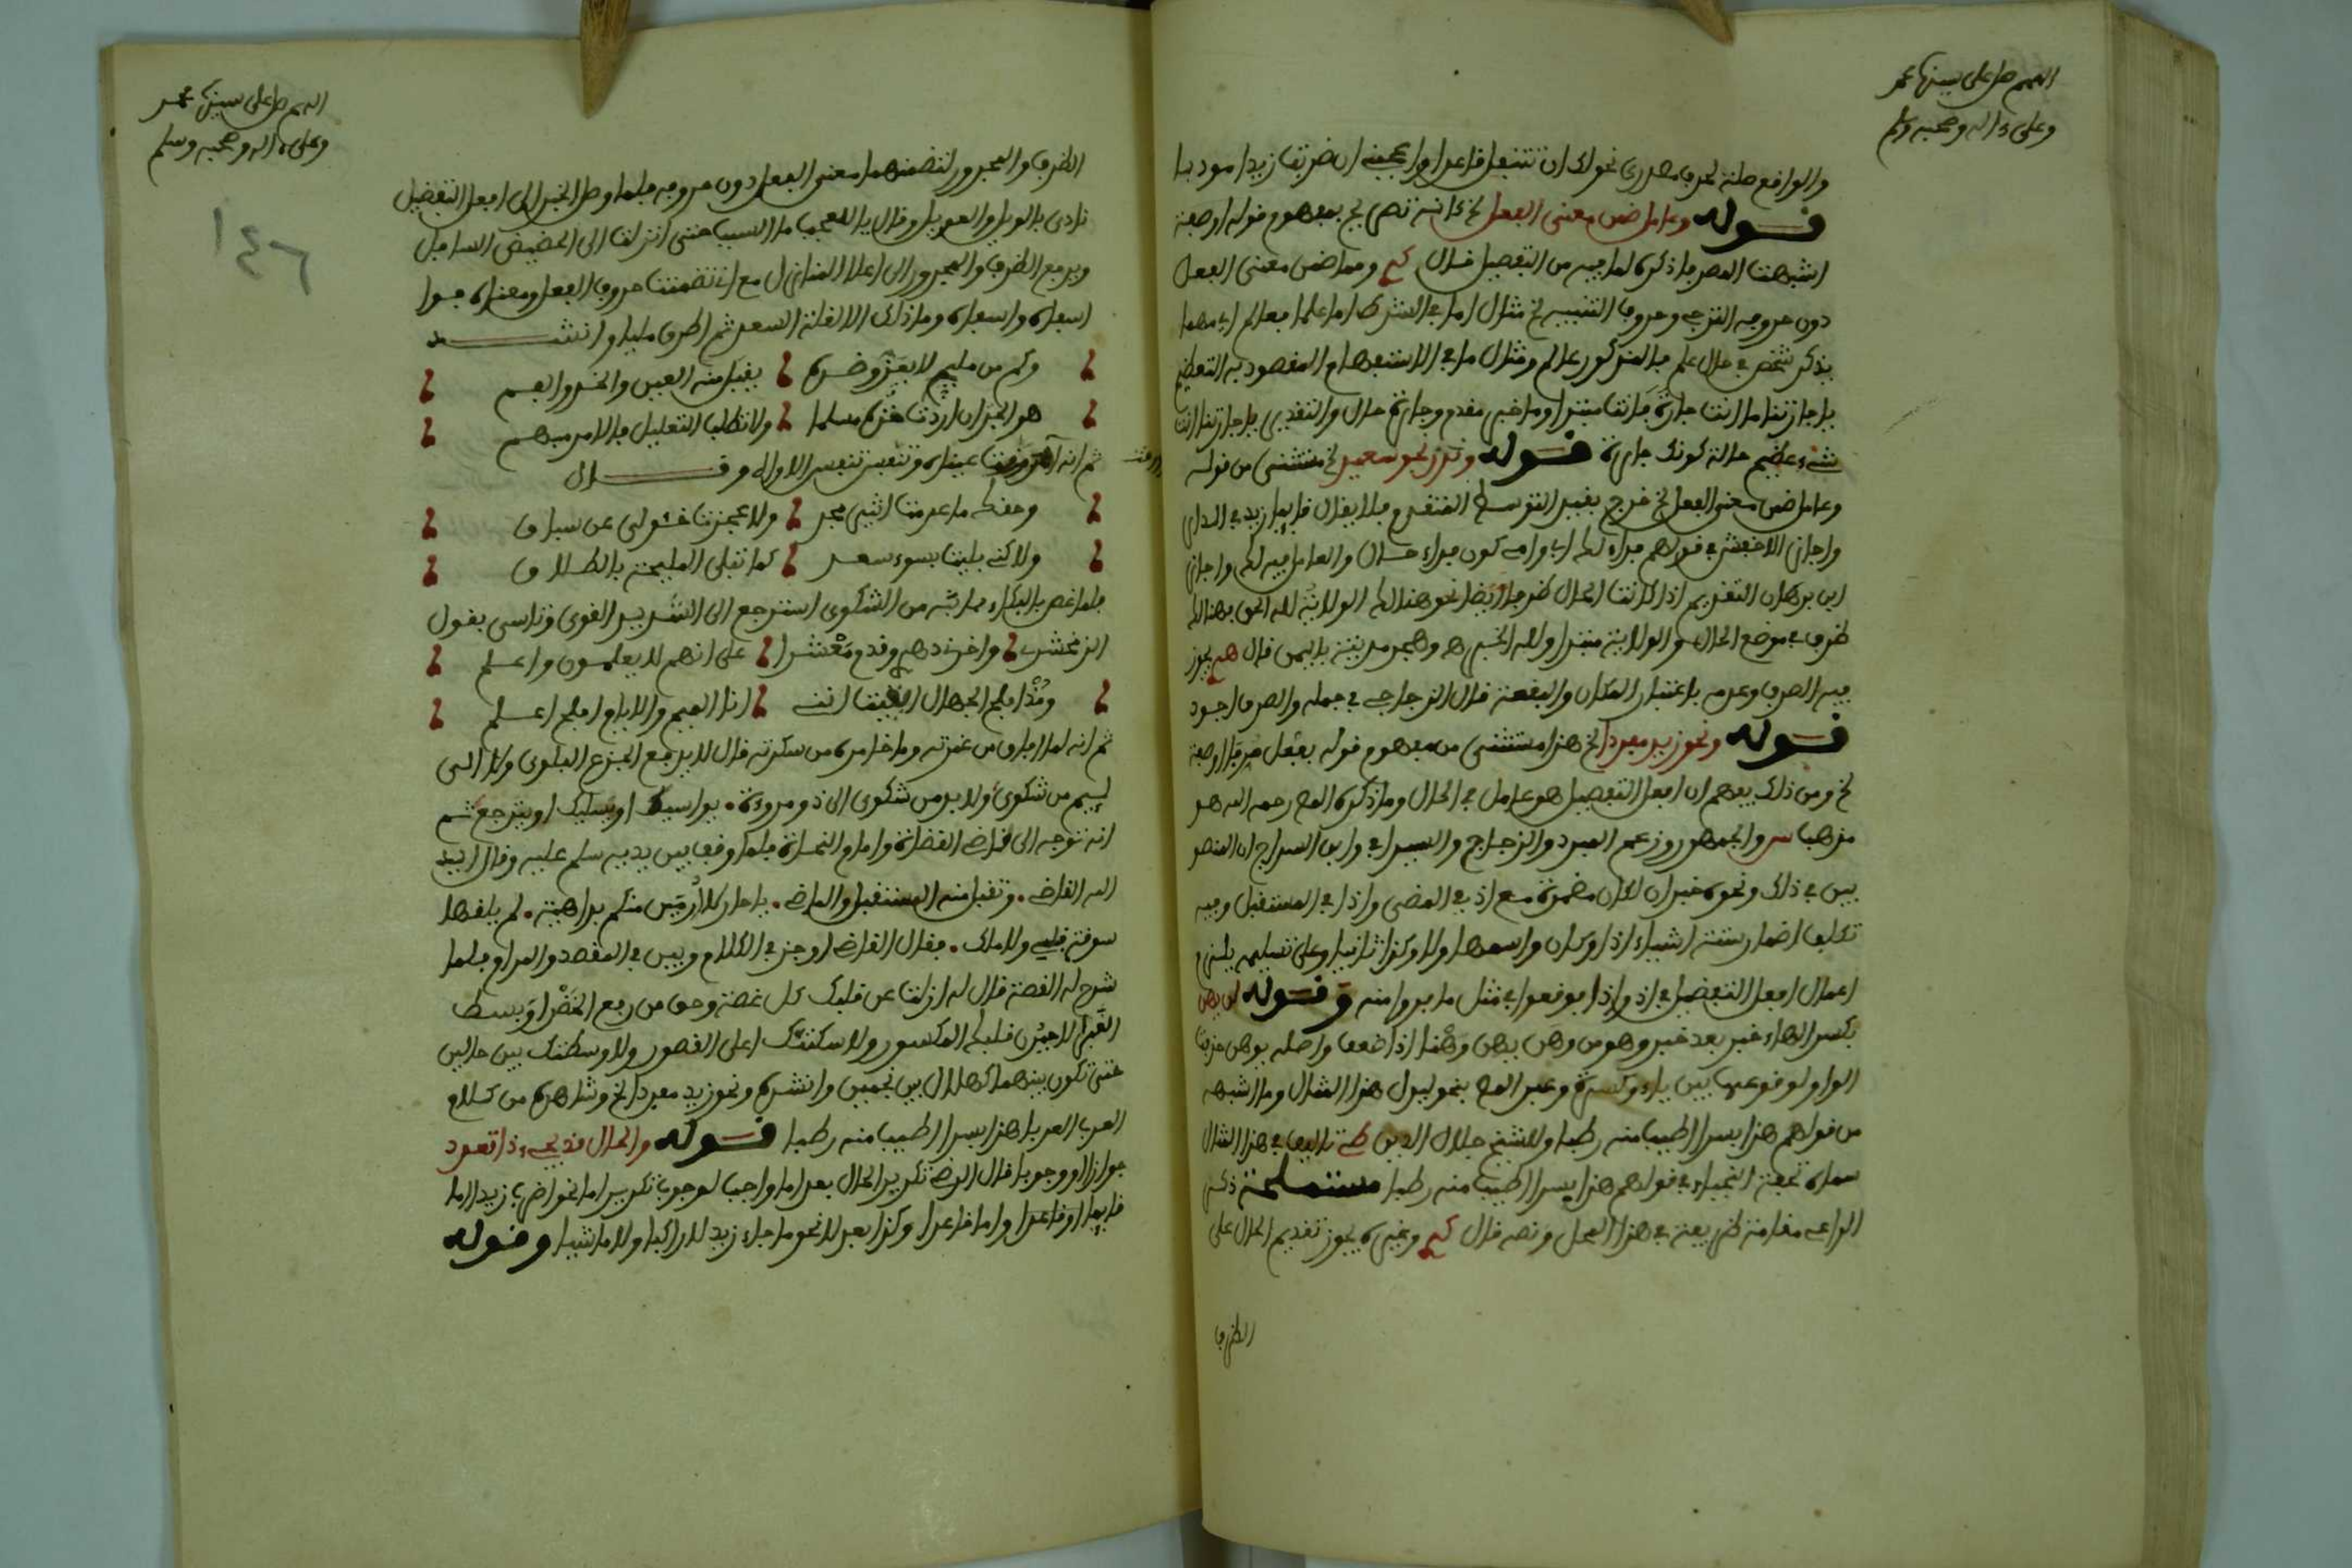 اللهم صل على سيدنا محمد
وعلى ءاله وصحبه وسلم
والواقع صلة لحرف مصدري نحو لك ان تتنفل قاعدا واعجبني ان ضربت زيدا مودبا
قوله وعامل ضمن معنى الفعل الخ كانه تصريح بمفهوم قوله او صفة
اشبهت المصرفا ذكره لما فيه من التفصيل قال وما ضمن معنى الفعل
دون حروفه الترجي وحروف التنبيه الخ مثال اما في الشرط اما علما فعالم اي مهما
يذكر شخص في حال علم فالمذكور عالم ومثال ما في الاستفهام المقصود به التعظيم
يا جارتا ما انت جارة فانت مبتدا وما خبر مقدم وجارة حال والتقدير يا جارتا انت
شيء عظيم حالة كونك جارة قوله وندر نحو سعيد الخ مستثنى من قوله
وعامل ضمن معنى الفعل الخ خرج بقيد التوسط المتقدم فلا يقال قايما زيد في الدار
واجاز الاخفش في قولهم فداء لك ابي وامي كون فداء حال والعامل فيه لك واجاز
ابن برهان التقديم اذا كانت الحال ظرفا ايضا نحو هنالك الولاية لله الحق فهنالك
ظرف في موضع الحال والولاية مبتدا ولله الخبر اه وهجر مدينة باليمن قال يجوز
فيه الصرف وعدمه باعتبار المكان والبقعة قال الزجاجي في جمله والصرف اجود
قوله ونحو زيد مفردا الخ هذا مستثنى من مفهوم قوله بفعل صرفا او صفة
الخ ومن ذلك يفهم ان افعل التفضيل هو عامل في الحال وما ذكره المص رحمه الله هو
مذهب س والجمهور وزعم المبرد والزجاج والسيرافي وابن السراج ان المنصو
بين في ذلك ونحوه خبران لكان مضمرة مع اذ في المضى واذا في المستقبل وفيه
تكلف اضمار ستة اشياء اذا وكان واسمها اولا وكذا ثانيا وعلى تسليمه يلزم
اعمال افعل التفضيل في اذ واذا فوقعوا في مثل ما فروا منه وقوله لن يهن
بكسر الهاء خبر بعد خبر وهو من وهن يهن وهنا اذا ضعف واصله يوهن حذفت
الواو لوقوعها بين ياء وكسرة وعبر المص بنحو ليدل هذا المثال وما اشبهه
من قولهم هذا بسرا اطيب منه رطبا وللشيخ جلال الدين تاليف في هذا المثال
سماه تحفة النجباء في قولهم هذا بسرا اطيب منه رطبا مستملحة ذكر
الراعي مقامة ظريفة في هذا المحل ونصه قال وغيره يجوز تقديم الحال على
الظرف
اللهم صل على سيدنا محمد
وعلى ءاله وصحبه وسلم
١٤٦
الظرف والمجرور لتضمنهما معنى الفعل دون حروفه فلما وصل الخبر الى افعل التفضيل
نادى بالويل والعويل وقال يا للعجب ما السبب حتى انزلت الى الحضيض السافل
ويرفع الظرف والمجرور الى اعلا المنازل مع اني تضمنت حروف الفعل ومعناه فوا
اسفاه واسفاه وما ذاك الا لقلة السعد ثم اطرق مليا وانشد
وكم من مليح لا يعز وضده يقبل منه العين والخد والفم
هو الجد ان اردت خذه مسلما ولا تطلب التعليل فالامر مبهم
ثم انه عيناه وتنفس تنفس الاواه وقال
وحقك ما عدمت اثيل مجد ولا عجزت خيولي عن سباق
ولاكني بليت بسوء سعد كما تبلى المليحة بالطلاق
فلما غص بالبكاء مما بثه من الشكوى استرجع الى الشديد القوى وتاسى بقول
الزمخشري واخرني دهري وقدم معشرا على انهم لا يعلمون واعلم
ومذ افلح الجهال ايقنت انني انا الميم والايام افلح اعلم
ثم انه لما افاق من غمرته وما خامره من سكرته قال لا يرفع الجزع البلوى وكل الى
ليم من شكوى ولابد من شكوى الى ذو مروءة يواسيك او يسليك او يتوجع ثم
انه توجه الى قاضي القضاة وامام النحاة فلما وقف بين يديه سلم عليه وقال ايد
الله القاضي وتقبل منه المستقبل والماضي يا جار كلا رميت منكم بداهية لم يلقها
سوقة قبلي ولا ملك فقال القاضي اوجز في الكلام وبين في المقصد والمرام فلما
شرح له القصة قال له ازلت عن قلبك كل غصة وحق من رفع الخضرا وبسط
الغبرا لاجبرن قلبك المكسور ولاسكننك اعلى القصور ولاوسطنك بين حالين
حتى تكون بينهما كهلال بين نجمين وانشده ونحو زيد مفردا الخ وشاهده من كلام
العرب العربا هذا بسرا اطيب منه رطبا قوله والحال قد يجيء ذا تعدد
جوازا او وجوبا قال الرضي تكرير الحال بعد اما واجب لوجوب تكرير اما نحو اضرب زيدا اما
قايما او قاعدا واما قاعدا وكذا بعد لا نحو ما جاء زيد لا راكبا ولا ماشيا وقوله